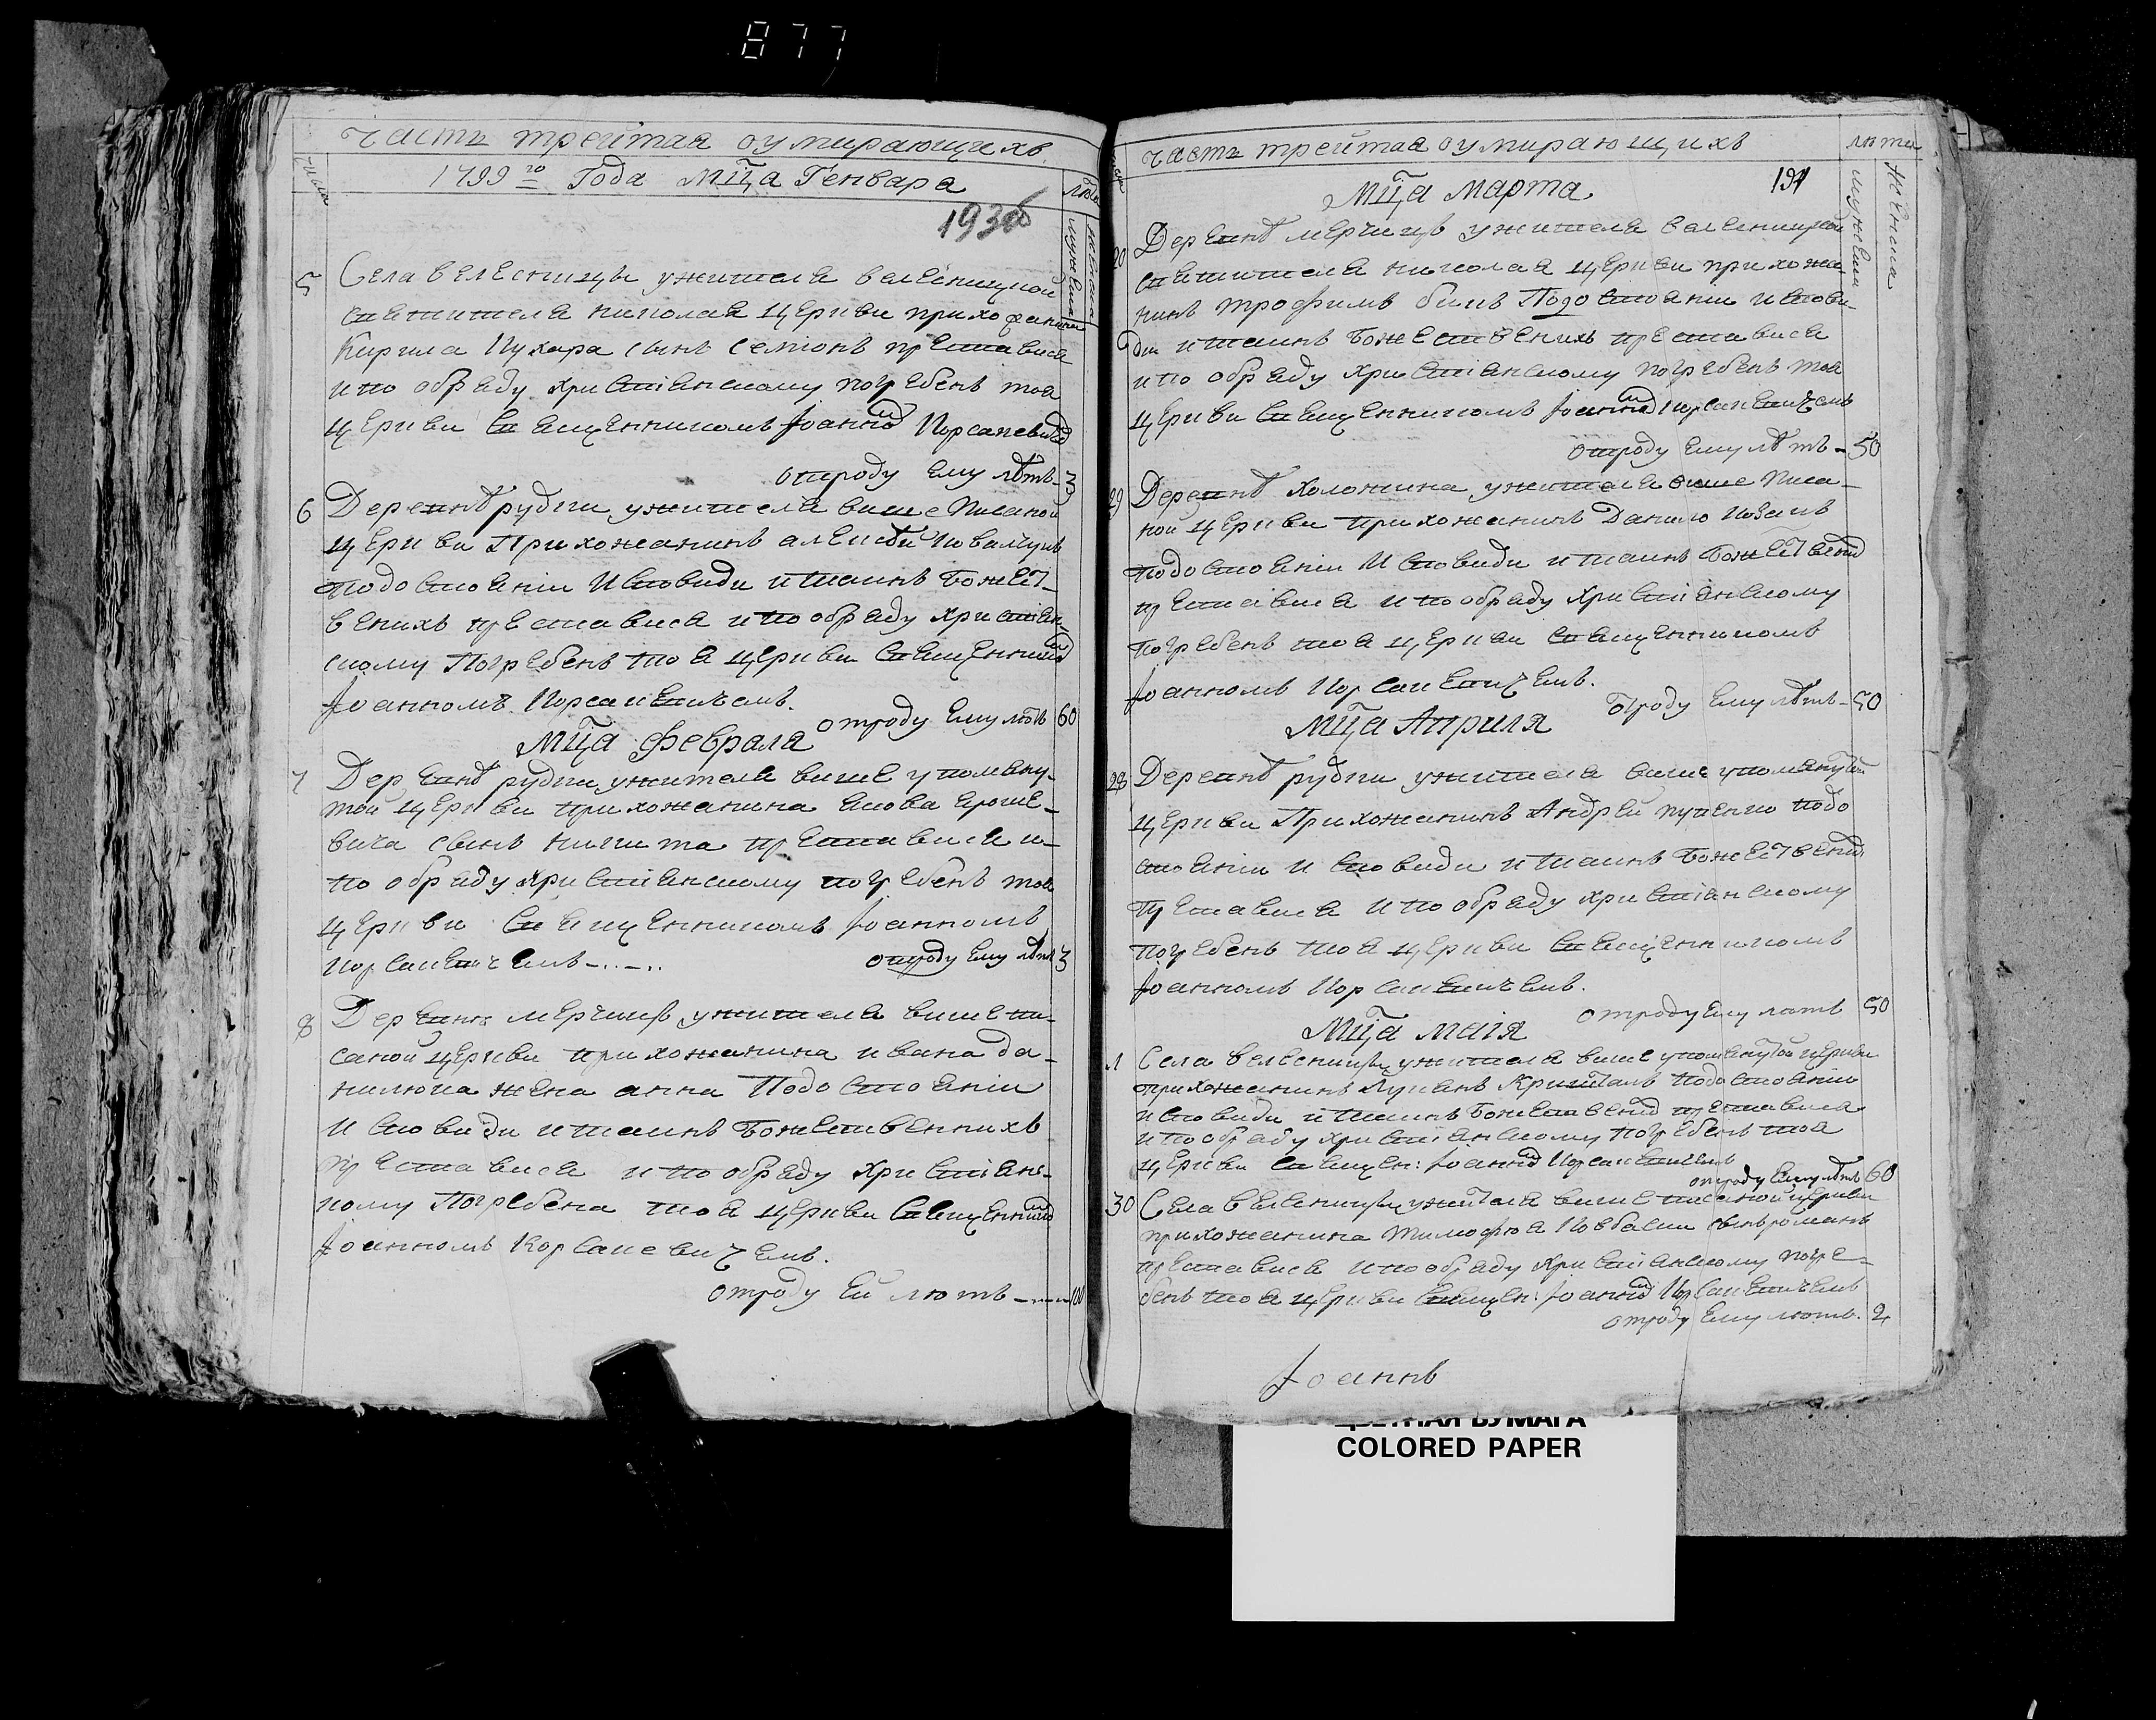 877
часть трейтая оумирающихъ
числа
лѣта
1799го Года Мц͠а Генвара
мужеска
женска
193
5
Села велесницы ужителя велесницкой
святителя николая церкви прихожанина
Кирила Кухара сынъ семіонъ преставися
и по обряду христіанскому погребенъ тоя
церкви священникомъ Іоанномъ Корсакевичемъ
отроду ему лѣтъ - 3
6 Деревнѣ рудки ужителя више писаной
церкви Прихожанинъ алексѣй ковалчукъ
подостоянію Исповиди итаинъ Божест-
венихъ преставися ипо обряду христіан-
скому Погребенъ тоя церкви священникомъ
Іоанномъ Корсакевичемъ.
отроду Ему лѣтъ 60
Мц͠а Февраля
7 Деревнѣ рудки ужителя више упомяну-
той церкви прихожанина
вича сынъ никита преставися и-
по обряду христіанскому погребенъ тоя
церкви священникомъ Іоанномъ
Корсакевичемъ-..-..
отроду Ему лѣтъ 3
8 Деревнѣ мерчицъ ужителя више пи-
саной церкви прихожанина ивана да-
нилюка жена анна Подостоянію
Исповиди итаинъ Божественнихъ
преставися ипо обряду христіанс-
кому Погребена тоя церкви священникомъ
Іоанномъ Корсакевичемъ.
отроду Ей лютъ ---- 100
часть трейтая оумирающихъ
лѣта
мужеска
женска
Мц͠а Марта
194
20 Деревнѣ мерчицъ ужителя велесницкой
святителя николая церкви прихожа-
нинъ трофимъ билъ Подостоянію испови-
ди итаинъ Божественихъ преставися
ипо обряду христіанскому погребенъ тоя
церкви священникомъ Іоанномъ Корсакевичемъ
отроду Ему лѣтъ - 50
29 Деревнѣ холожина ужителя више писа-
ной церкви прихожанинъ Данило козакъ
подостоянію Исповиди итаинъ Божественихъ
преставися ипо обряду христіанскому
погребенъ тоя церкви священникомъ
Іоанномъ Корсакевичемъ.
отроду Ему лѣтъ - 50
Мц͠а Априля
28 Деревнѣ рудки ужителя више упомянутой
церкви Прихожанинъ Андрей подо
стоянію исповиди итаинъ Божественихъ
преставися ипо обряду христіанскому
погребенъ тоя церкви священникомъ
Іоанномъ Корсакевичемъ.
отроду Ему лютъ 50
Мц͠а маія
1 Села велесницы ужителя више упомянутой церкви
прихожанинъ Лукянъ подостоянію
исповиди итаинъ Божественихъ преставися
ипо обряду христіанскому погребенъ тоя
церкви священ: Іоанномъ Корсакевичемъ
отроду Ему лѣтъ 60
30 Села велесницы ужителя више писаной церкви
прихожанина тимофея сынъ романъ
преставися ипо обряду христіанскому погре-
бенъ тоя церкви священ: Іоанномъ Корсакевичемъ
отроду Ему лютъ. 2
Іоаннъ
ЦВЕТНАЯ БУМАГА
COLORED PAPER